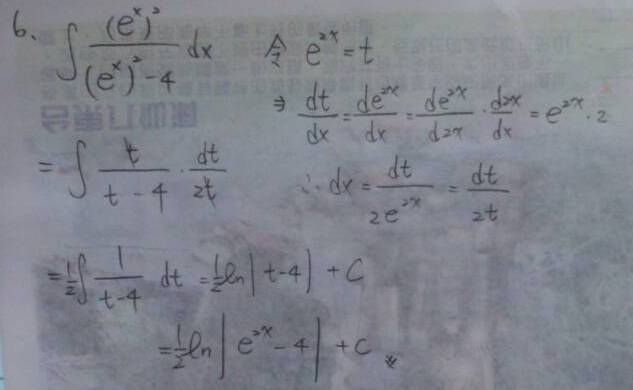 6. ∫ (eˣ)² / ((eˣ)² - 4) dx 令 e²ˣ = t
⇒ dt/dx = de²ˣ/dx = de²ˣ/d2x · d2x/dx = e²ˣ · 2
= ∫ t/(t - 4) · dt/2t ∴ dx = dt/2e²ˣ = dt/2t
= ½∫ 1/(t-4) dt = ½ ln|t-4| + C
= ½ ln|e²ˣ - 4| + C